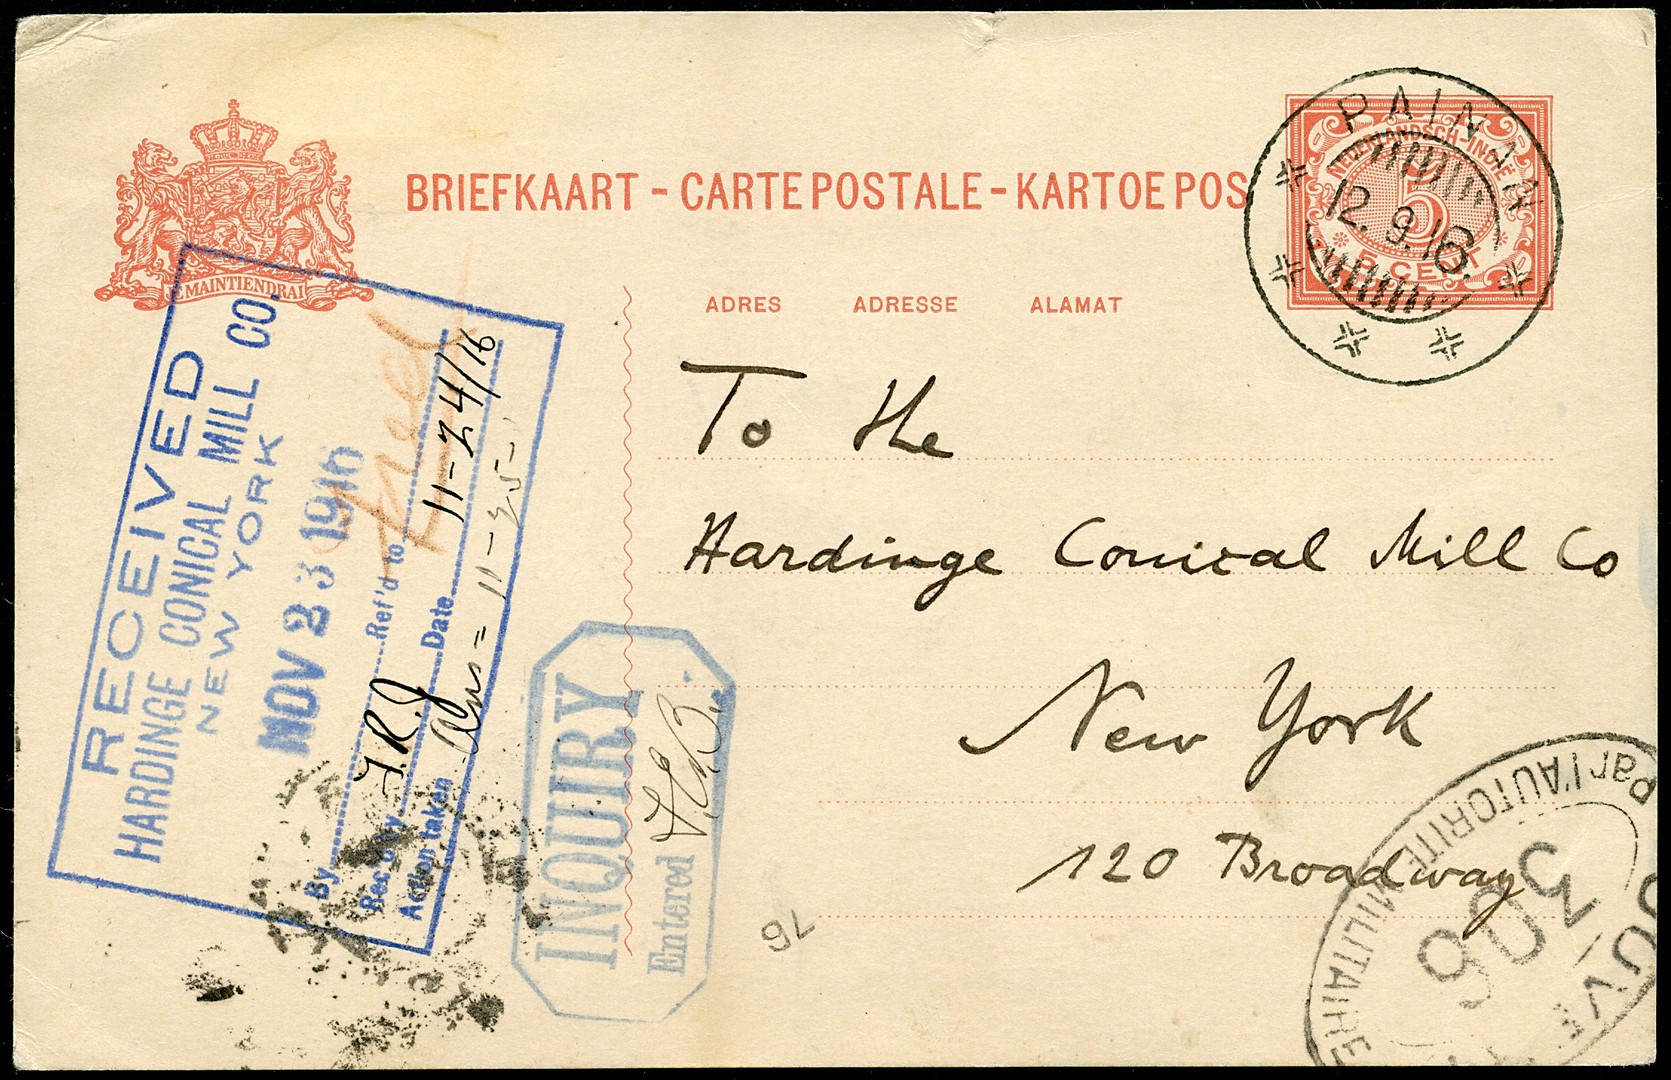 BRIEFKAART - CARTE POSTALE - KARTOE POS
JE MAINTIENDRAI
NEDERLANDSCH-INDIË
5
5 CENT
PAINAN
12.9.16.
ADRES ADRESSE ALAMAT
To the
Hardinge Conical Mill Co
New York
120 Broadway
RECEIVED
HARDINGE CONICAL MILL CO.
NEW YORK
NOV 23 1916
By Ref'd to
Rec'd by J.R.J Date 11-24/16
Action taken Ans= 11-25-
INQUIRY
Entered
76
OUVE
Par l'AUTORITE MILITAIRE
306